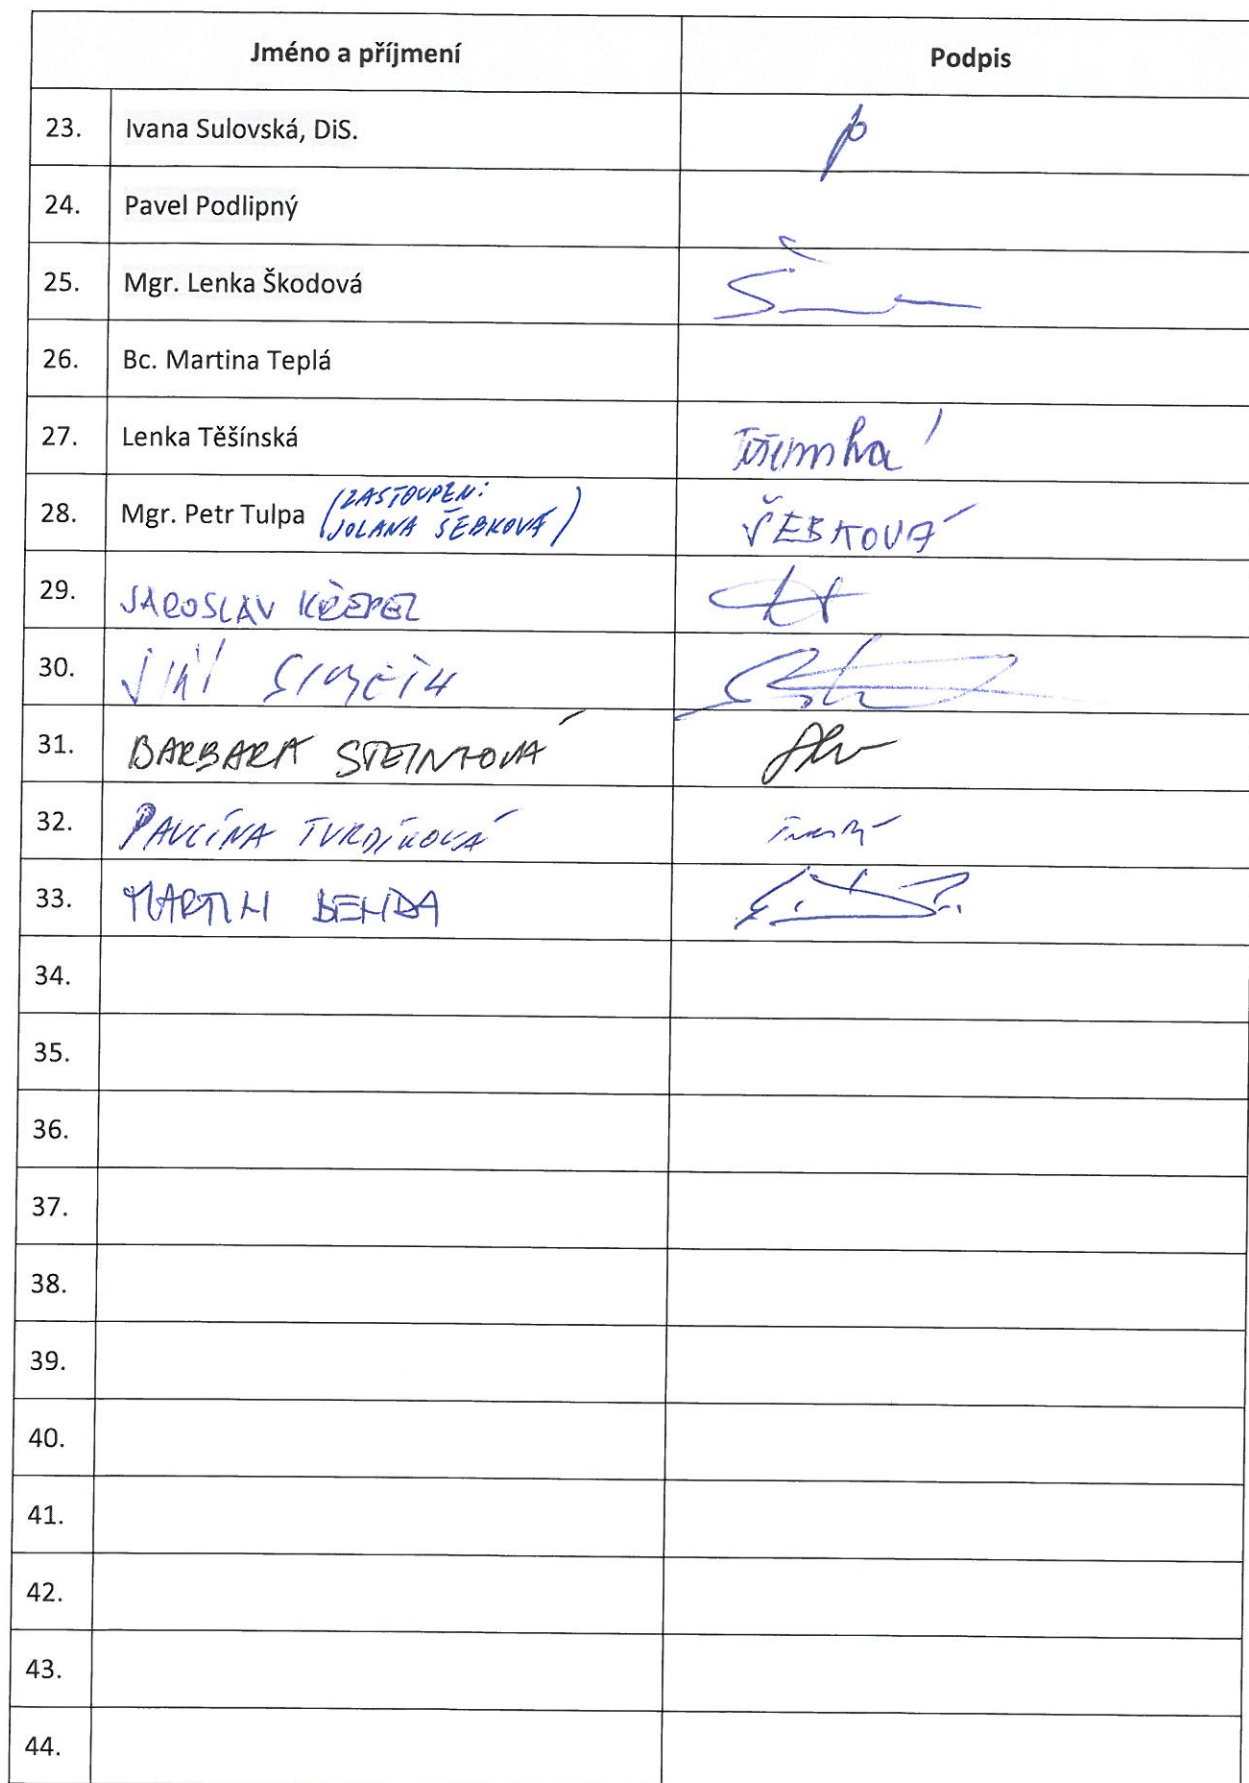 Jméno a příjmení Podpis
23. Ivana Sulovská, DiS.
24. Pavel Podlipný
25. Mgr. Lenka Škodová
26. Bc. Martina Teplá
27. Lenka Těšínská
28. Mgr. Petr Tulpa (ZASTOUPEN: JOLANA ŠEBKOVÁ) ŠEBKOVÁ
29. JAROSLAV KŘEPEL
30. JIŘÍ
31. BARBARA
32. PAVLÍNA TVRDÍKOVÁ
33. MARTIN BENDA
34.
35.
36.
37.
38.
39.
40.
41.
42.
43.
44.